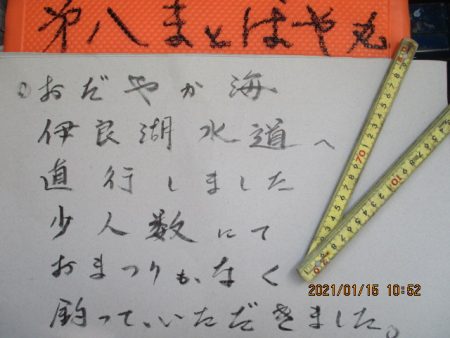 第八まとばや丸
おだやか海
伊良湖水道へ
直行しました
少人数にて
おまつりも、なく
釣って、いただきました。
2021/01/15 10:52